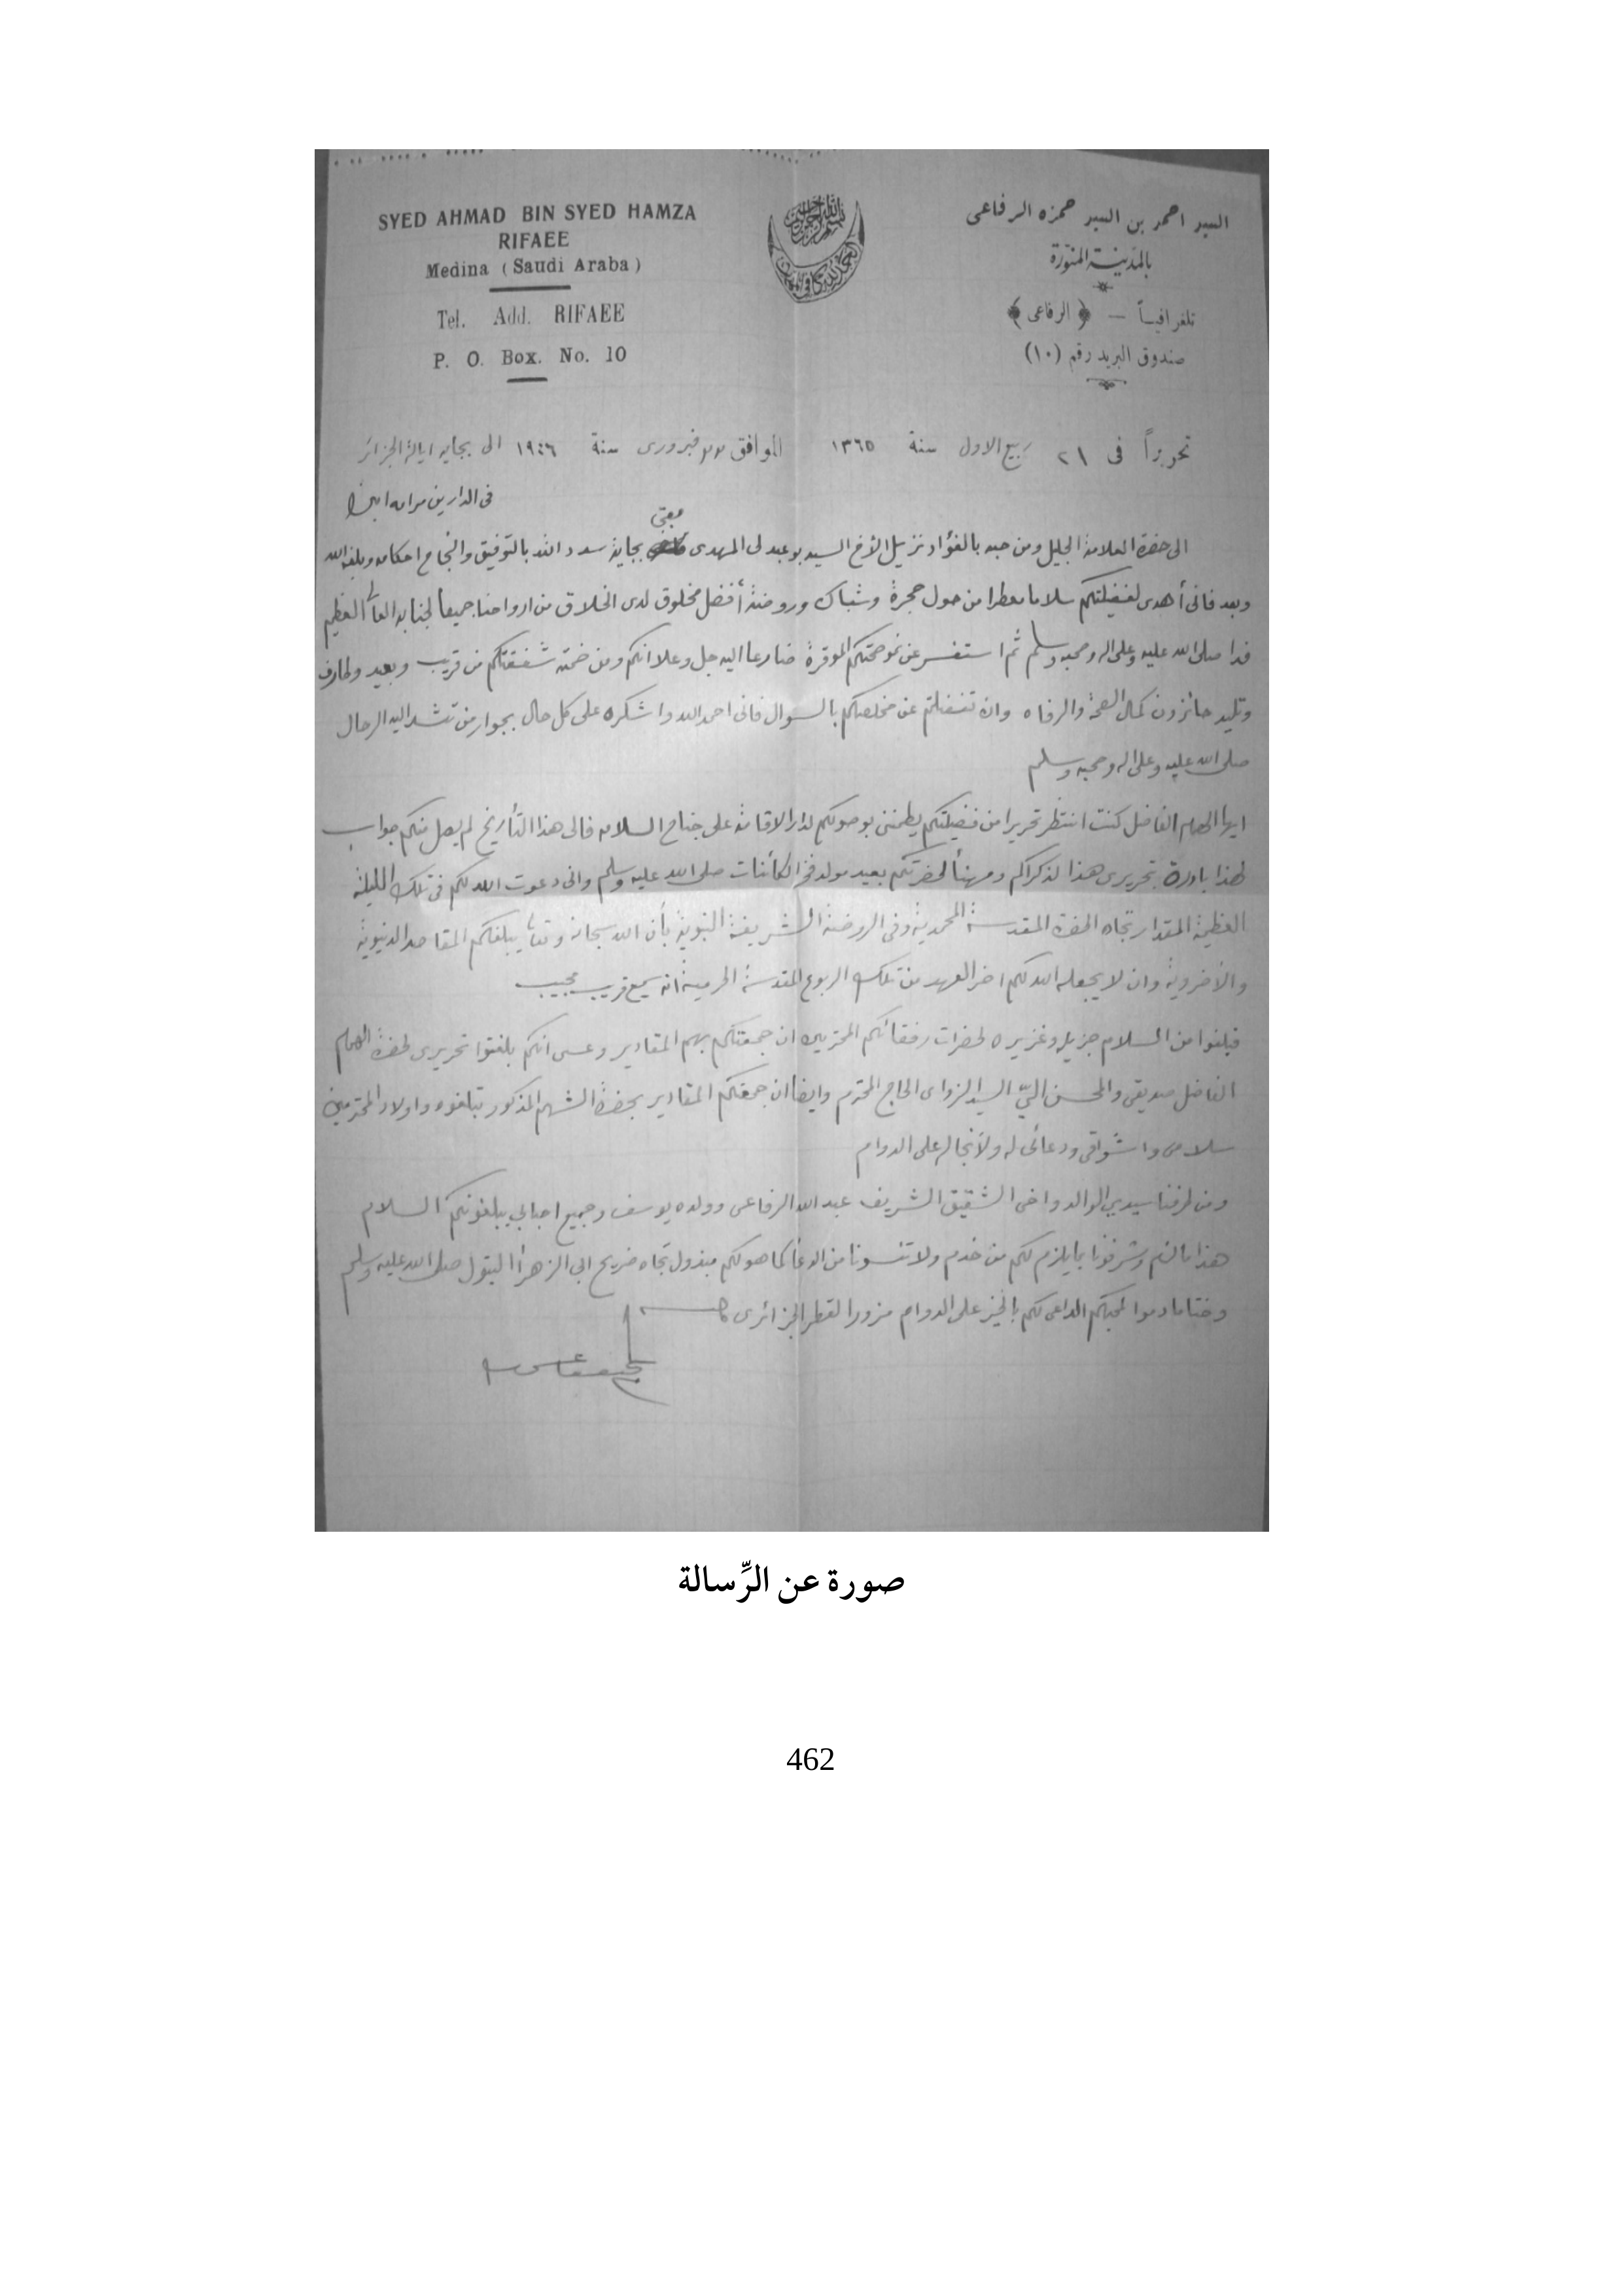 SYED AHMAD BIN SYED HAMZA
RIFAEE
Medina ( Saudi Araba )
Tel. Add. RIFAEE
P. O. Box. No. 10
السيد احمد بن السيد حمزه الرفاعى
بالمدينة المنورة
تلغرافياً — ﴿ الرفاعى ﴾
صندوق البريد رقم (١٠)
تحريراً فى ٢١ ربيع الاول سنة ١٣٦٥ الموافق ٢٢ فبرورى سنة ١٩٤٦ الى بجايه ايالة الجزائر
الى حضرة العلامة الجليل ومن حبه بالفؤاد نزيل الأخ السيد بوعبدلى المهدى مفتى بجاية سدد الله بالتوفيق والنجاح احكامه وبلغه الله
فى الدارين مرامه امين
وبعد فانى أهدى لفضيلتكم سلاما معطرا من حول حجرة وشباك وروضة أفضل مخلوق لدى الخلاق من ارواحنا جميعا لجنابه العالى العظيم
فدا صلى الله عليه وعلى اله وصحبه وسلم ثم استفسر عن نحو صحتكم الموقرة ضارعا اليه جل وعلا انكم ومن ضمته شفقتكم من قريب وبعيد وطارف
وتليد حائزون كمال الصحة والرفاه وان تفضلتم عن مخلصكم بالسوال فانى احمد الله واشكره على كل حال بجوار من تشد اليه الرحال
صلى الله عليه وعلى اله وصحبه وسلم
ايها الهمام الفاضل كنت انتظر تحريرا من فضيلتكم يطمنى بوصولكم لدار الاقامة على جناح السلامه فالى هذا التأريخ لم يصل منكم جواب
لهذا بادرة بتحريرى هذا لذكراكم ومهنأ لحضرتكم بعيد مولد فخر الكائنات صلى الله عليه وسلم وانى دعوت الله لكم فى تلك الليلة
العظيمة المقدار تجاه الحضرة المقدسة المحمدية وفى الروضة الشريفة النبوية بأن الله سبحانه وتعالى يبلغكم المقاصد الدنيوية
والأخروية وان لا يجعله الله لكم اخر العهد من تلك الربوع المقدسة الحرمية انه سميع قريب مجيب
فبلغوا من السلام جزيله وغزيره لحضرات رفقائكم المحترمين ان جمعتكم بهم المقادير وعسى انكم بلغتوا تحريرى لحضرة الهمام
الفاضل صديقى والمحسن الىّ السيد الزواى الحاج المحترم وايضا ان جمعتكم المقادير بحضرة الشهم المذكور تبلغوه واولاد المحترمين
سلامى واشواقى ودعائى له ولأنجاله على الدوام
ومن طرفنا سيدي الوالد واخى الشقيق الشريف عبدالله الرفاعى وولده يوسف وجميع احبابى يبلغونكم السلام
هذا مالزم وشرفونا بما يلزم لكم من خدم ولا تنسونا من الدعا كما هو لكم مبذول تجاه ضريح ابى الزهرا البتول صلى الله عليه وسلم
وختاما دمتوا لمحبكم الداعى لكم بالخير على الدوام مزور القطر الجزائرى
صورة عن الرِّسالة
462